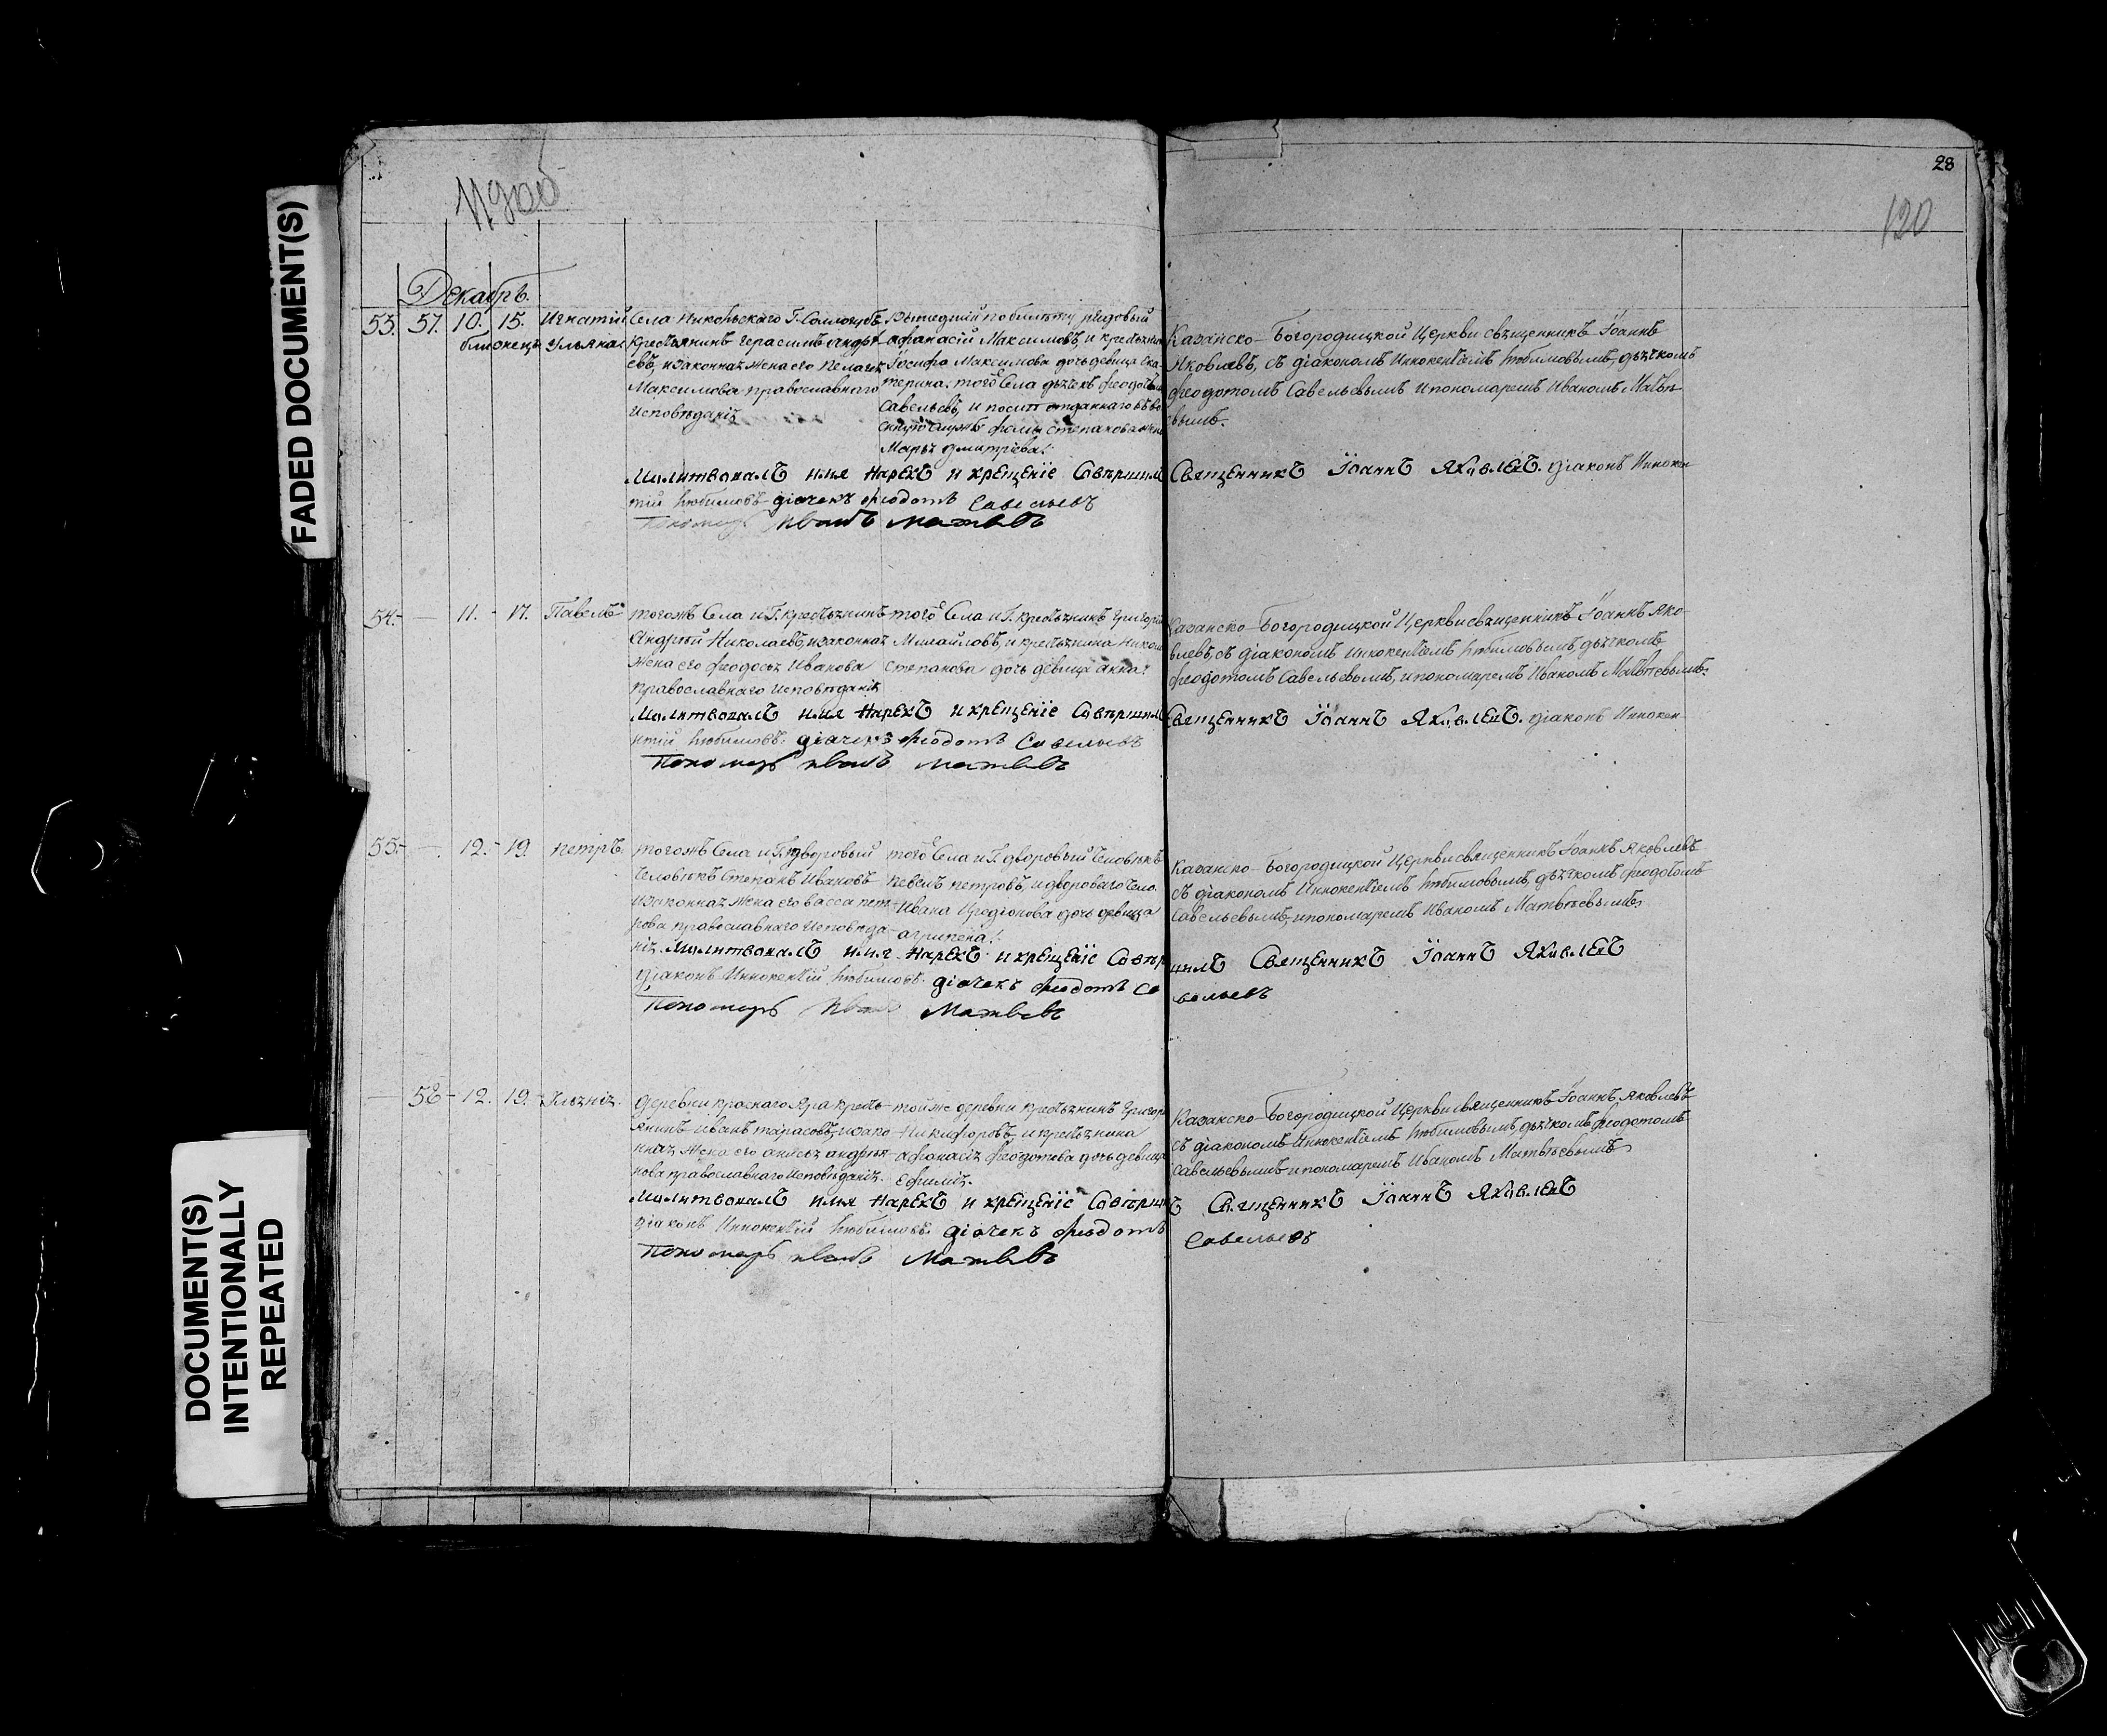 FADED DOCUMENT(S)
DOCUMENT(S)
INTENTIONALLY
REPEATED
119об
28
120
Декабрь.
53. 57. 10. 15. Игнатій
близнецы Ульяна
Села Никольскаго Г.
Крестьянинъ Герасимъ Андре-
евъ, и законная жена его Пелагея
Максимова православнаго
исповѣданія
Вышедшій по билету рядовый
Афанасій Максимовъ, и крестьянина
Іосифа Максимова дочь девица Ека-
терина. того Села дьячекъ Феодотъ
Савельевъ, и
Степанова жена
Марья Дмитріева.
Казанско-Богородицкой Церкви священникъ Іоаннъ
Яковлевъ, съ діакономъ Иннокентіемъ Любимовымъ, дьячкомъ
Феодотомъ Савельевымъ и пономаремъ Иваномъ Матвѣ-
евымъ.
Молитвовалъ имя Нарекъ и крещеніе Совершилъ Священникъ Іоаннъ Яковлевъ. діаконъ Иннокен
тій Любимовъ діачекъ Феодотъ Савельевъ
Пономарь Иванъ Матвевъ
54. — 11. 17. Павелъ
Тогожъ Села и Г. Крестьянинъ
Андрей Николаевъ, и законная
жена его Феодосья Иванова
православнаго исповѣданія
того Села и Г. Крестьянинъ Григорій
Михайловъ, и крестьянина
Степанова дочь девица Анна.
Казанско-Богородицкой Церкви священникъ Іоаннъ Яко-
влевъ, съ діакономъ Иннокентіемъ Любимовымъ, дьячкомъ
Феодотомъ Савельевымъ, и пономаремъ Иваномъ Матвѣевымъ.
Молитвовалъ имя Нарекъ и крещеніе Совершилъ Священникъ Іоаннъ Яковлевъ. діаконъ Иннокен-
нтій Любимовъ. діачекъ Феодотъ Савельевъ
Пономарь Иванъ Матвевъ
55. — 12. 19. Петръ.
Тогожъ Села и Г. дворовый
человѣкъ Степанъ Ивановъ
и законная жена его Васса Пет-
рова православнаго исповѣда-
нія.
того Села и Г. дворовый человѣкъ
Павелъ Петровъ, и двороваго чело.
Ивана Иродіонова дочь девица
Агрипена.
Казанско-Богородицкой Церкви священникъ Іоаннъ Яковлевъ
съ діакономъ Иннокентіемъ Любимовымъ, дьячкомъ Феодотомъ
Савельевымъ, и пономаремъ Иваномъ Матвѣевымъ.
Молитвовалъ имя Нарекъ и крещеніе Совершилъ Священникъ Іоаннъ Яковлевъ
діаконъ Иннокентій Любимовъ. діачекъ Феодотъ Савельевъ
Пономарь Иванъ Матвевъ
— 58 12. 19.
Деревни Краснаго Яра кресть-
янинъ Иванъ Тарасовъ, и зако-
нная жена его Анисья Андрея-
нова православнаго исповѣданія.
тойже деревни Крестьянинъ Григорій
Никифоровъ, и крестьянина
Афанасія Феодотова дочь девица
Ефимія.
Казанско-Богородицкой Церкви священникъ Іоаннъ Яковлевъ
съ діакономъ Иннокентіемъ Любимовымъ, дьячкомъ Феодотомъ
Савельевымъ и пономаремъ Иваномъ Матвѣевымъ
Молитвовалъ имя Нарекъ и крещеніе Совершилъ Священникъ Іоаннъ Яковлевъ
діаконъ Иннокентій Любимовъ. діачекъ Феодотъ Савельевъ
Пономарь Иванъ Матвевъ